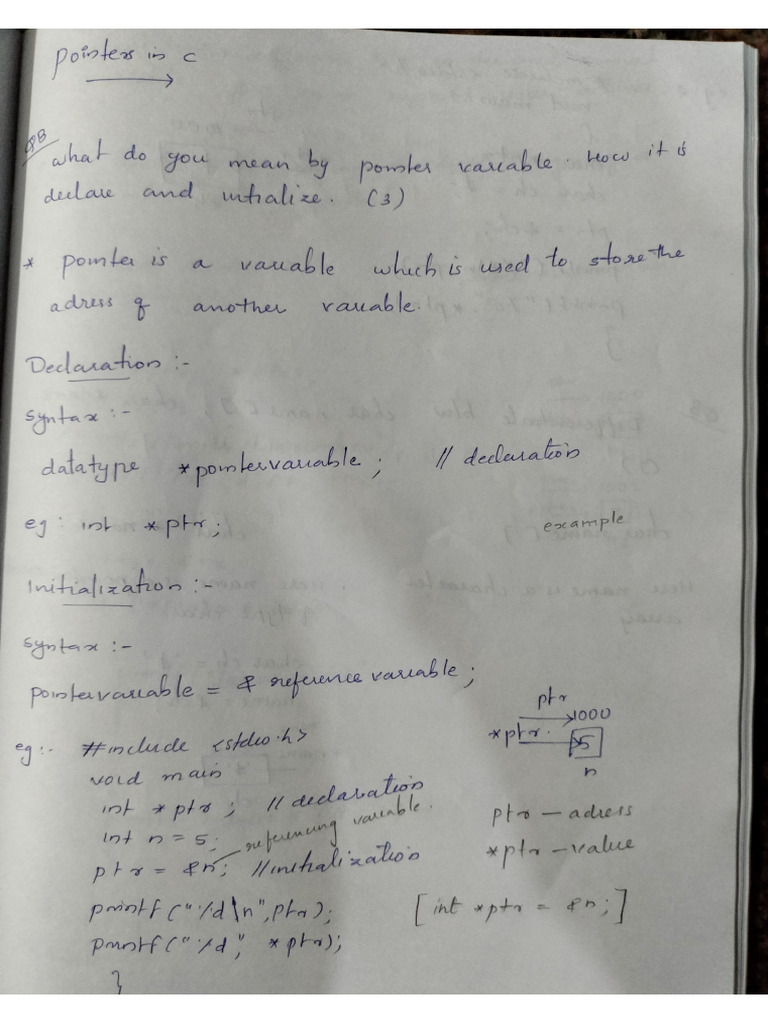 Pointers in C
QB
what do you mean by pointer variable. How it is
declare and intialize. (3)
* pointer is a variable which is used to store the
adress of another variable.
Declaration :-
syntax :-
datatype *pointervariable; // declaration
eg: int *ptr; example
Initialization :-
syntax :-
pointervariable = & reference variable;
ptr
1000
*ptr 5
n
eg:- #include <stdio.h>
void main
int *ptr; // declaration
int n = 5; referencing variable.
ptr = &n; //initialization
printf("%d\n", ptr);
printf("%d", *ptr);
}
ptr - adress
*ptr - value
[int *ptr = &n;]